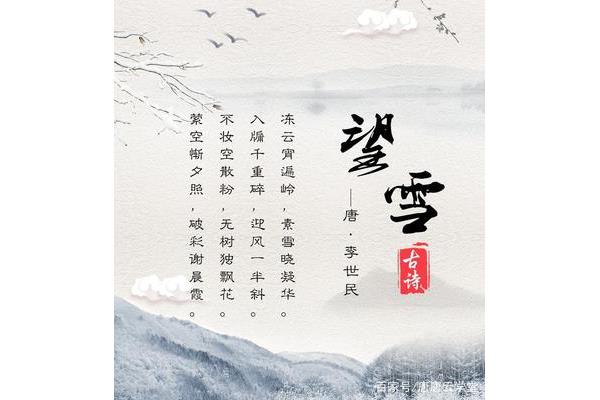 望雪
——唐·李世民
古诗
冻云宵遍岭，素雪晓凝华。
入牖千重碎，迎风一半斜。
不妆空散粉，无树独飘花。
萦空惭夕照，破彩谢晨霞。
百家号/唐唐云学堂